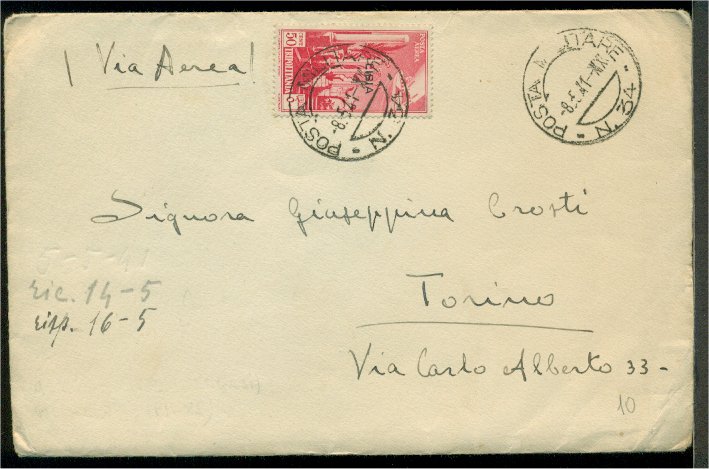 Via Aerea
CENT. 50 TRIPOLITANIA
POSTA AEREA
LIBIA
POSTA MILITARE N. 34
-8.5.41-XIX
POSTA MILITARE N. 34
-8.5.41-XIX
Signora Giuseppina Crosti
5-5-41
ric. 14-5
Torino
risp. 16-5
Via Carlo Alberto 33-
10